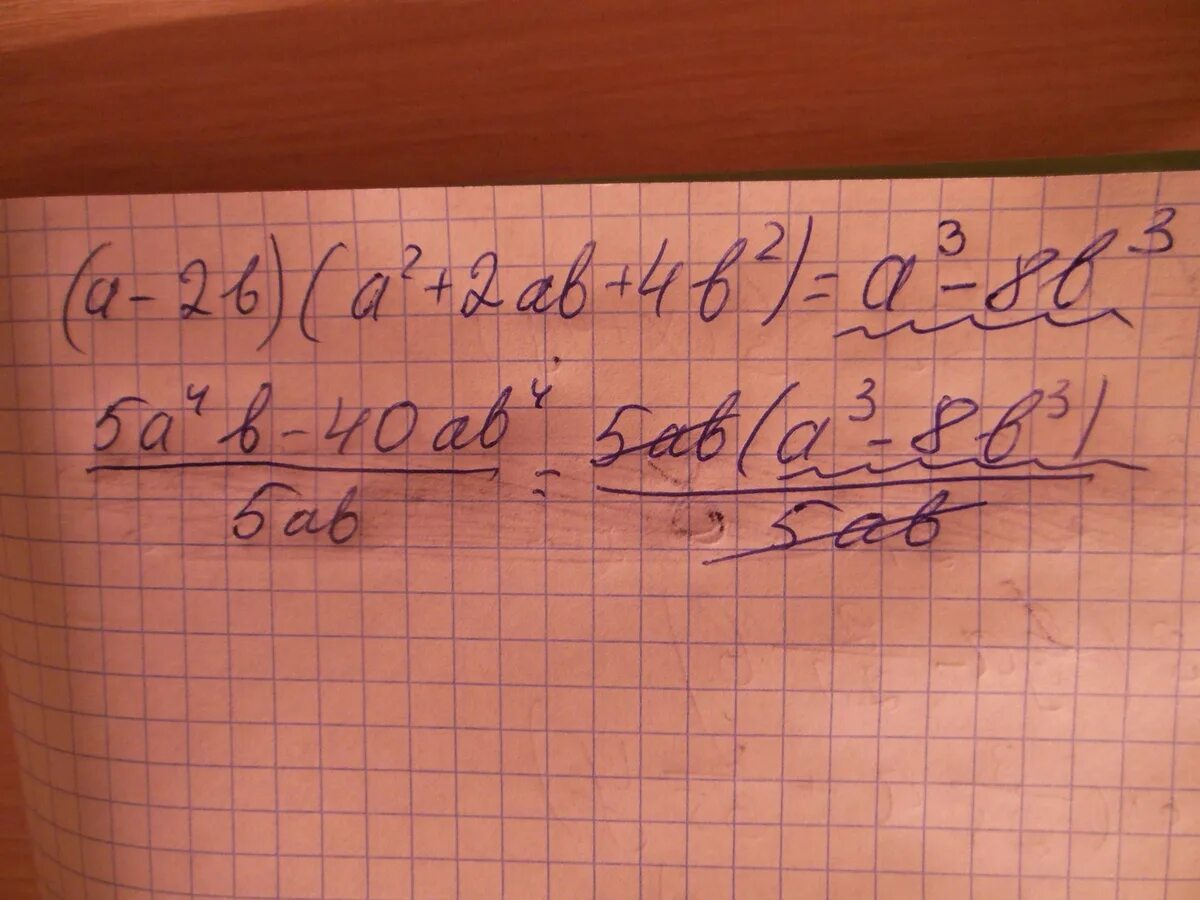 (a - 2b)(a² + 2ab + 4b²) = a³ - 8b³
(5a⁴b - 40ab⁴)/(5ab) = (5ab(a³ - 8b³))/(5ab)